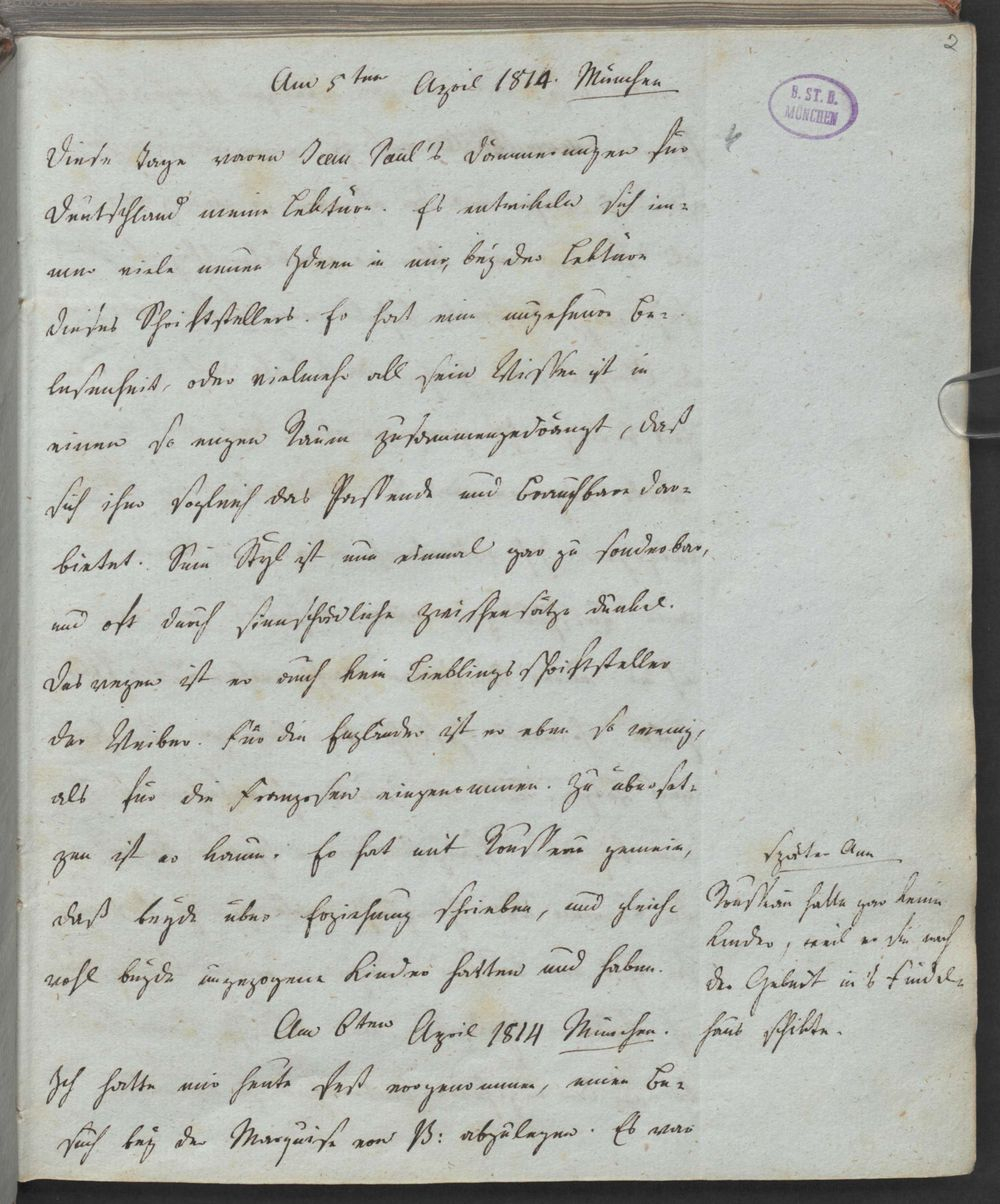 2
Am 5ten April 1814. München
B. ST. B.
MÜNCHEN
Diese Tage waren Jean Paul's Dämmerungen für
Deutschland meine Lektüre. Es entwikeln sich im-
mer viele neuen Ideen in mir, bey der Lektüre
dieses Schriftstellers. Er hat eine ungeheure Be-
lesenheit, oder vielmehr all sein Wissen ist in
einen so engen Raum zusammengedrängt, daß
sich ihm sogleich das Passende und Brauchbare dar-
bietet. Sein Styl ist nun einmal gar zu sonderbar,
und oft durch sinnschädliche Zwischensätze dunkel.
Deswegen ist er auch kein Lieblingsschriftsteller
der Weiber. Für die Engländer ist er eben so wenig,
als für die Franzosen eingenommen. Zu überset-
zen ist er kaum. Er hat mit Rousseau gemein,
daß beyde über Erziehung schrieben, und gleich-
wohl beyde ungezogene Kinder hatten und haben.
später Anm
Rousseau hatte gar keine
Kinder, weil er sie nach
der Geburt in's Findel-
haus schikte.
Am 6ten April 1814 München.
Ich hatte mir heute fest vorgenommen, einen Be-
such bey der Marquise von B: abzulegen. Es war